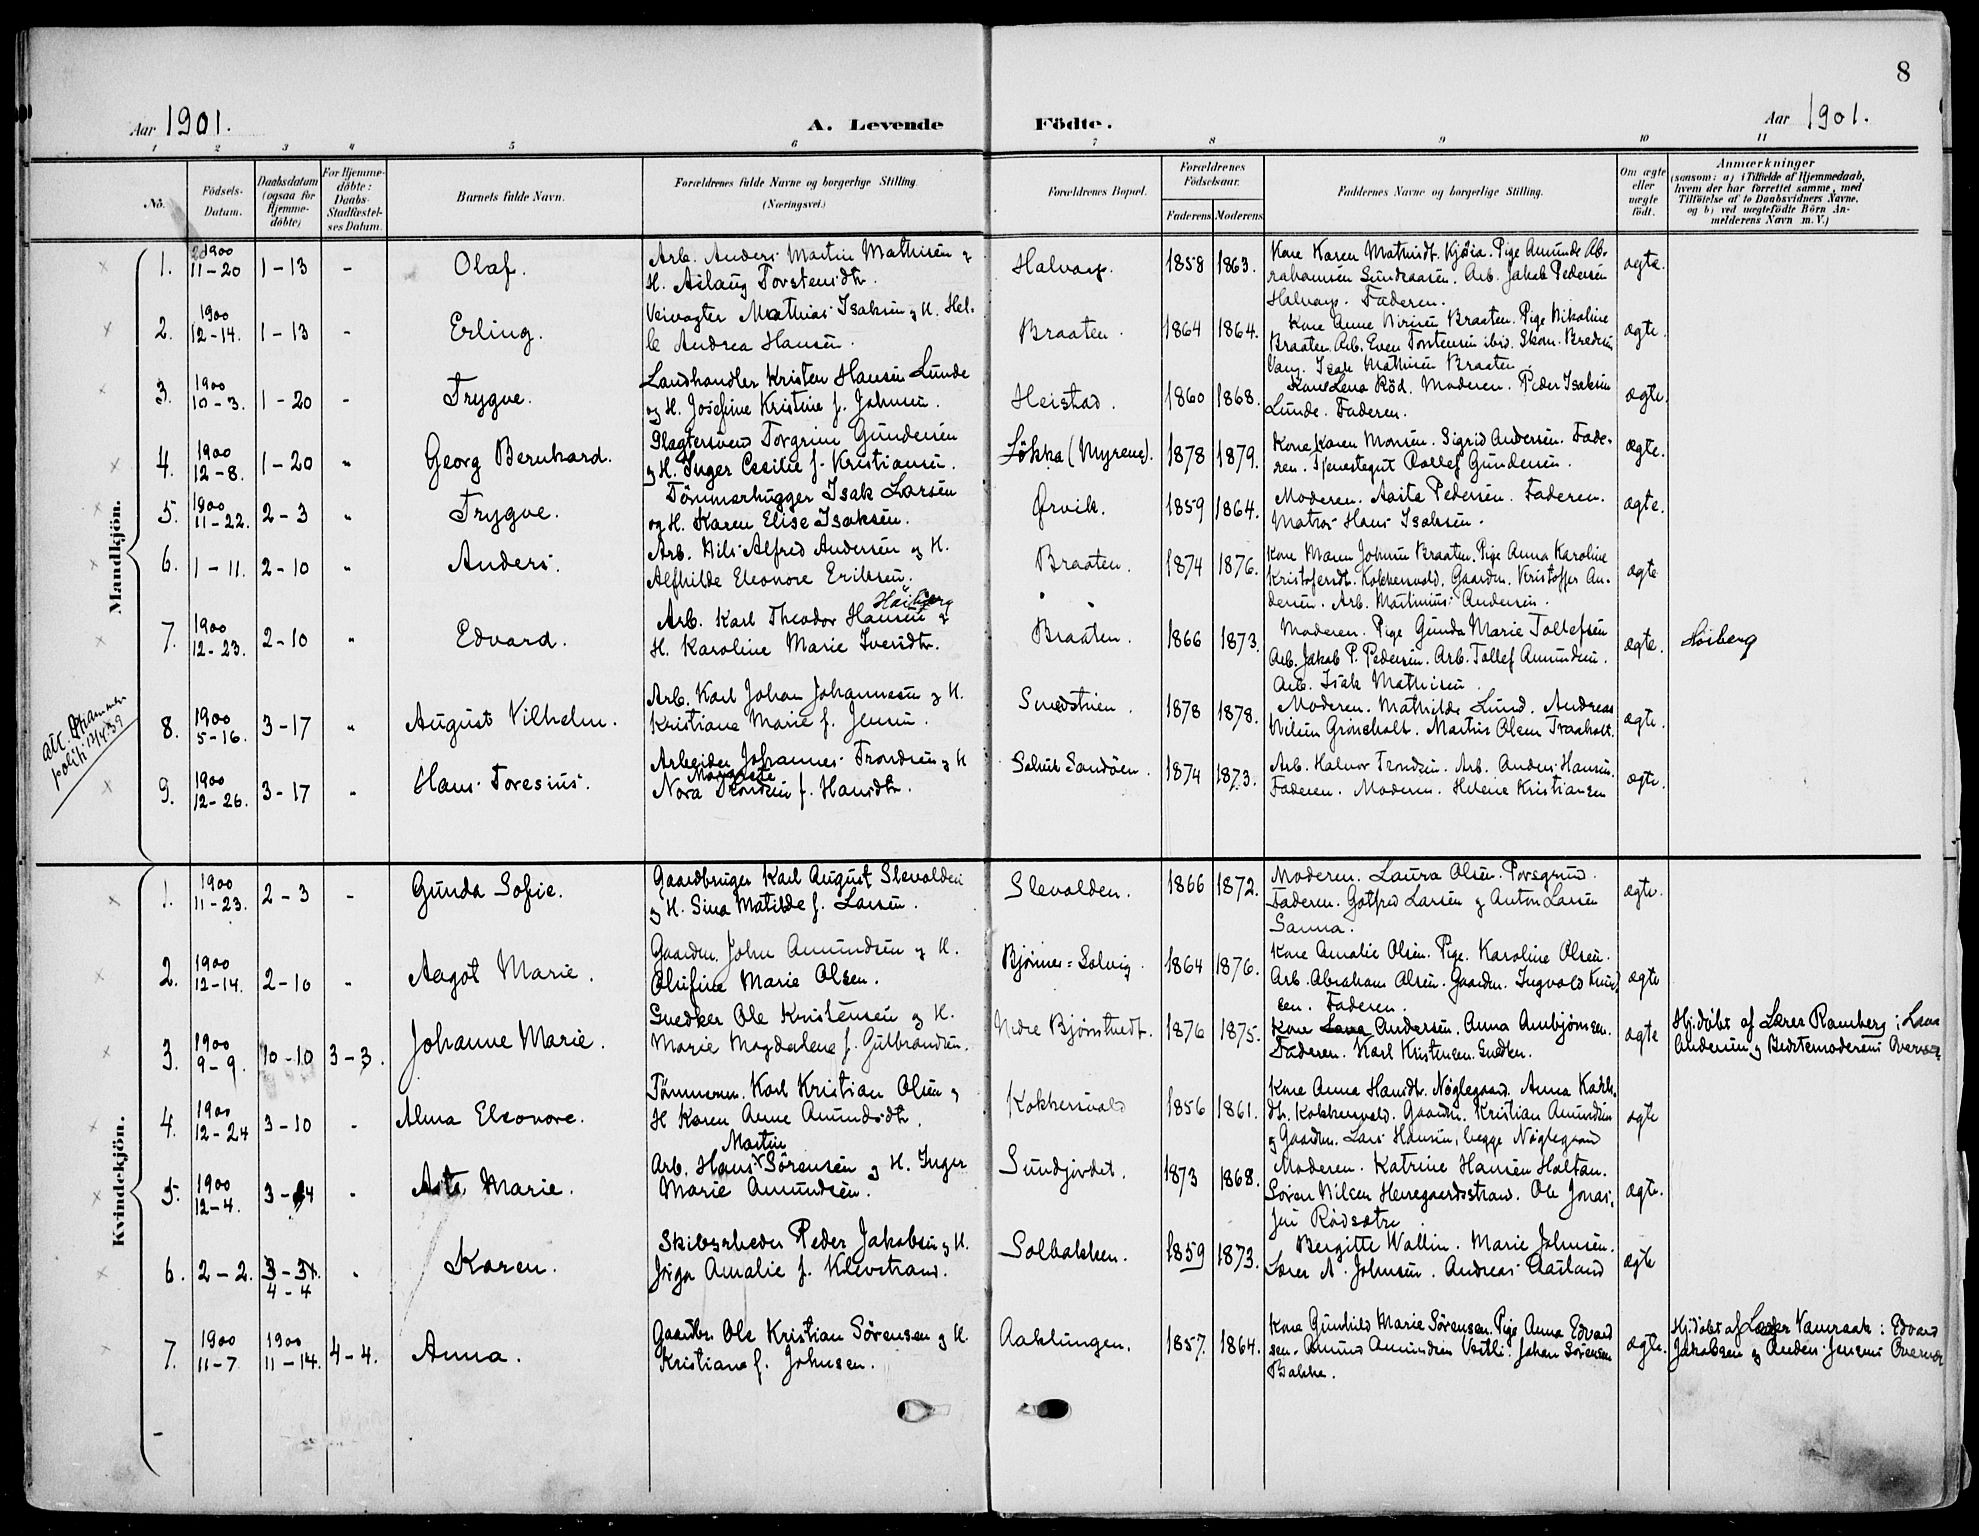 8
Aar 1901. A. Levende Födte. Aar 1901.
1 2 3 4 5 6 7 8 9 10 11
No. Födsels-Datum. Daabsdatum (ogsaa for Hjemmedöbte) For Hjemmedöbte: Daabs-Stadfæstelses Datum. Barnets fulde Navn. Forældrenes fulde Navne og borgerlige Stilling. (Næringsvei.) Forældrenes Bopæl. Forældrenes Födselsaar. Faderens Moderens Faddernes Navne og borgerlige Stilling. Om ægte eller uægte födt. Anmærkninger (saasom: a) i Tilfælde af Hjemmedaab, hvem der har forrettet samme, med Tilföielse af to Daabsvidners Navne, og b) ved uægtefödte Börn Anmelderens Navn m. V.)
Mandkjön.
1. 1900 11-20 1-13 - Olaf. Arb. Anders Martin Mathisen &
H. Aslaug Torstensdtr. Halvarp. 1858 1863. Kone Karen Mathisdt. Kjøia. Pige Amunde Ab-
rahamsen Sundsaasen. Arb. Jakob Pedersen
Halvarp. Faderen. ægte.
2. 1900 12-14. 1-13 - Erling. Veivogter Mathias Isaksen & H. Hel-
le Andrea Hansen. Braaten. 1864 1864. Kone Anne Nirisen Braaten. Pige Nikoline
Braaten. Arb. Even Torstensen ibid. Skom. Brede
Vang. Isak Mathisen Braaten. ægte.
3. 1900 10-3. 1-20 - Trygve. Landhandler Kristen Hansen Lunde
og H. Josefine Kristine f. Johnsen. Heistad. 1860 1868. Kone Lena Röd. Moderen. Peder Isaksen
Lunde. Faderen. ægte.
4. 1900 12-8. 1-20 " Georg Bernhard. Slagtersvend Torgrim Gundersen
og H. Inger Cecilie f. Kristiansen. Løkka (Myrene). 1878 1879. Kone Karen Monsen. Sigrid Andersen. Fade-
ren. Tjenestegut Rollef Gundersen. ægte.
5. 1900 11-22. 2-3 " Trygve. Tömmerhugger Isak Larsen
og H. Karen Elise Isaksen. Ørvik. 1859 1864. Moderen. Aasta Pedersen. Faderen.
Matros Hans Isaksen. ægte.
6. 1-11. 2-10 " Anders. Arb. Nils Alfred Andersen og H.
Alfhilde Eleonore Eriksen. Braaten. 1874 1876. Kone Maren Johnsen Braaten. Pige Anna Karoline
Kristofersdt. Kokkersvold. Gaardm. Kristoffer An-
dersen. Arb. Martinius Andersen. ægte
7. 1900 12-23. 2-10 " Edvard. Arb. Karl Theodor Hansen Høiberg &
H. Karoline Marie Iversdtr. Braaten. 1866 1873. Moderen. Pige Gunda Marie Tollefsen
Arb. Jakob P. Pedersen. Arb. Tollef Amundsen.
Arb. Isak Mathisen. ægte. Høiberg
att. Drammen politi 12/4.39
8. 1900 5-16. 3-17 " August Vilhelm. Arb. Karl Johan Johannesen og H.
Kristiane Marie f. Jensen. Smedstuen. 1878 1878. Moderen. Mathilde Lund. Andreas
Nilsen Grönsholt. Martin Olsen Traaholt. ægte.
9. 1900 12-26. 3-17 " Hans Toresius. Arbeider Johannes Trondsen og H
Nora Margrete Trondsen f. Hansdtr. Salut Sandöen. 1874 1873. Arb. Halvor Trondsen. Arb. Anders Hansen.
Faderen. Moderen. Helene Kristiansen ægte.
Kvindekjön.
1. 1900 11-23. 2-3 - Gunda Sofie. Gaardbruger Karl August Slevolden
og H. Sina Matilde f. Larsen. Slevolden. 1866 1872. Moderen. Laura Olsen. Porsgrund.
Faderen. Gotfred Larsen og Anton Larsen
Sanna. ægte.
2. 1900 12-14. 2-10 " Aagot Marie. Gaardm. John Amundsen og H.
Olufine Marie Olsen. Bjønnes=Solvig. 1864 1876. Kone Amalie Olsen. Pige. Karoline Olsen.
Arb. Abraham Olsen. Gaardm. Ingvald Knud-
sen. Faderen. ægte
3. 1900 9-9. 10-10 3-3. Johanne Marie. Snedker Ole Kristensen og H.
Marie Magdalene f. Gulbrandsen. Nedre Bjørnstvedt. 1876 1875. Kone Lava Andersen. Anna Anbjørnsen.
Faderen. Karl Kristensen Snedker. ægte Hj.döbt af Lærer Ramberg i Lava
Andersen og Bedstemoderens Overvær
4. 1900 12-24 3-10 - Alma Eleonore. Tömmerm. Karl Kristian Olsen og
H Karen Anne Amundsdtr. Kokkersvold 1856 1861. Kone Anna Hansdt. Nøglegaard. Anna Karls-
dt. Kokkersvold. Gaardm. Kristian Amundsen
og Gaardm. Lars Hansen, begge Nøglegaard ægte
5. 1900 12-4. 3-24 " Asta Marie. Arb. Hans Martin Sörensen og H. Inger
Marie Amundsen. Sundjordet. 1873 1868. Moderen. Katrine Hansen Holtan.
Søren Nilsen Herregaardsstrand. Ole Jonas-
sen Rödsætre. ægte.
6. 2-2. 3-31. 4-4 " Karen. Skibsrheder Peder Jakobsen og H.
Inga Amalie f. Klevstrand. Solbakken. 1859 1873. Bergitte Wallin. Marie Johnsen.
Lærer A. Johnsen. Andreas Aasland ægte
7. 1900 11-7. 1900 11-14. 4-4. Anna. Gaardbr. Ole Kristian Sörensen og H.
Kristiane f. Johnsen. Aaklungen. 1857. 1864. Kone Gunhild Marie Sörensen. Pige Anna Edvard
sen. Amund Amundsen Vestli. Johan Sörensen
Bakke. ægte. Hj.döbt af Lærer Vamraak i Edvard
Jakobsen og Anders Jensens Overvær